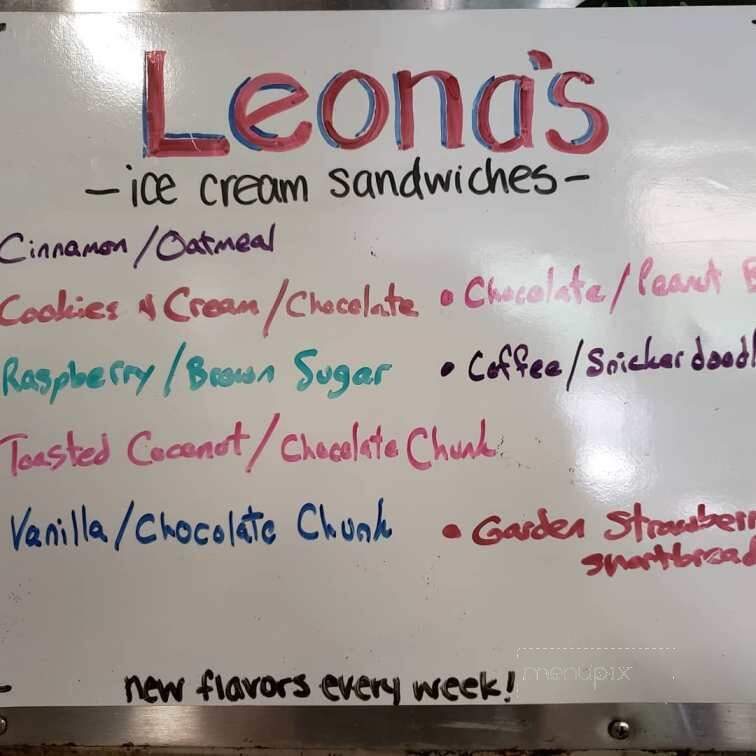 Leona's
- ice cream sandwiches -
Cinnamon / Oatmeal
Cookies & Cream / Chocolate
• Chocolate / Peanut B
Raspberry / Brown Sugar
• Coffee / Snickerdoodl
Toasted Coconut / Chocolate Chunk
Vanilla / Chocolate Chunk
• Garden Strawberr
shortbread
new flavors every week!
menupix